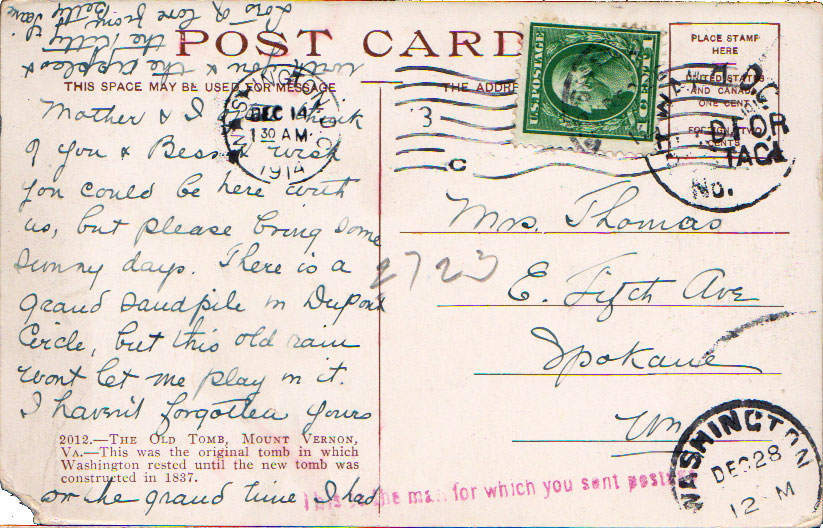 POST CARD
THIS SPACE MAY BE USED FOR MESSAGE
THE ADDRE
PLACE STAMP
HERE
UNITED STATES
AND CANADA
ONE CENT
FOREIGN TWO
CENTS
U.S. POSTAGE
WASHINGTON D.C.
DEC 14
1 30 AM
1914
3
C
D FOR
No.
Mother & I think
of you & Bess & wish
you could be here with
us, but please bring some
sunny days. There is a
grand sandpile in Dupont
Circle, but this old rain
wont let me play in it.
I haven't forgotten yours
or the grand time I had
with you & the apples &
the Kitty
Lots of love from
Betty
2012.—THE OLD TOMB, MOUNT VERNON,
VA.—This was the original tomb in which
Washington rested until the new tomb was
constructed in 1837.
Mrs. Thomas
2723
E. Fifth Ave
Spokane
Wn
This is the mail for which you sent postage
WASHINGTON
DEC 28
12 M